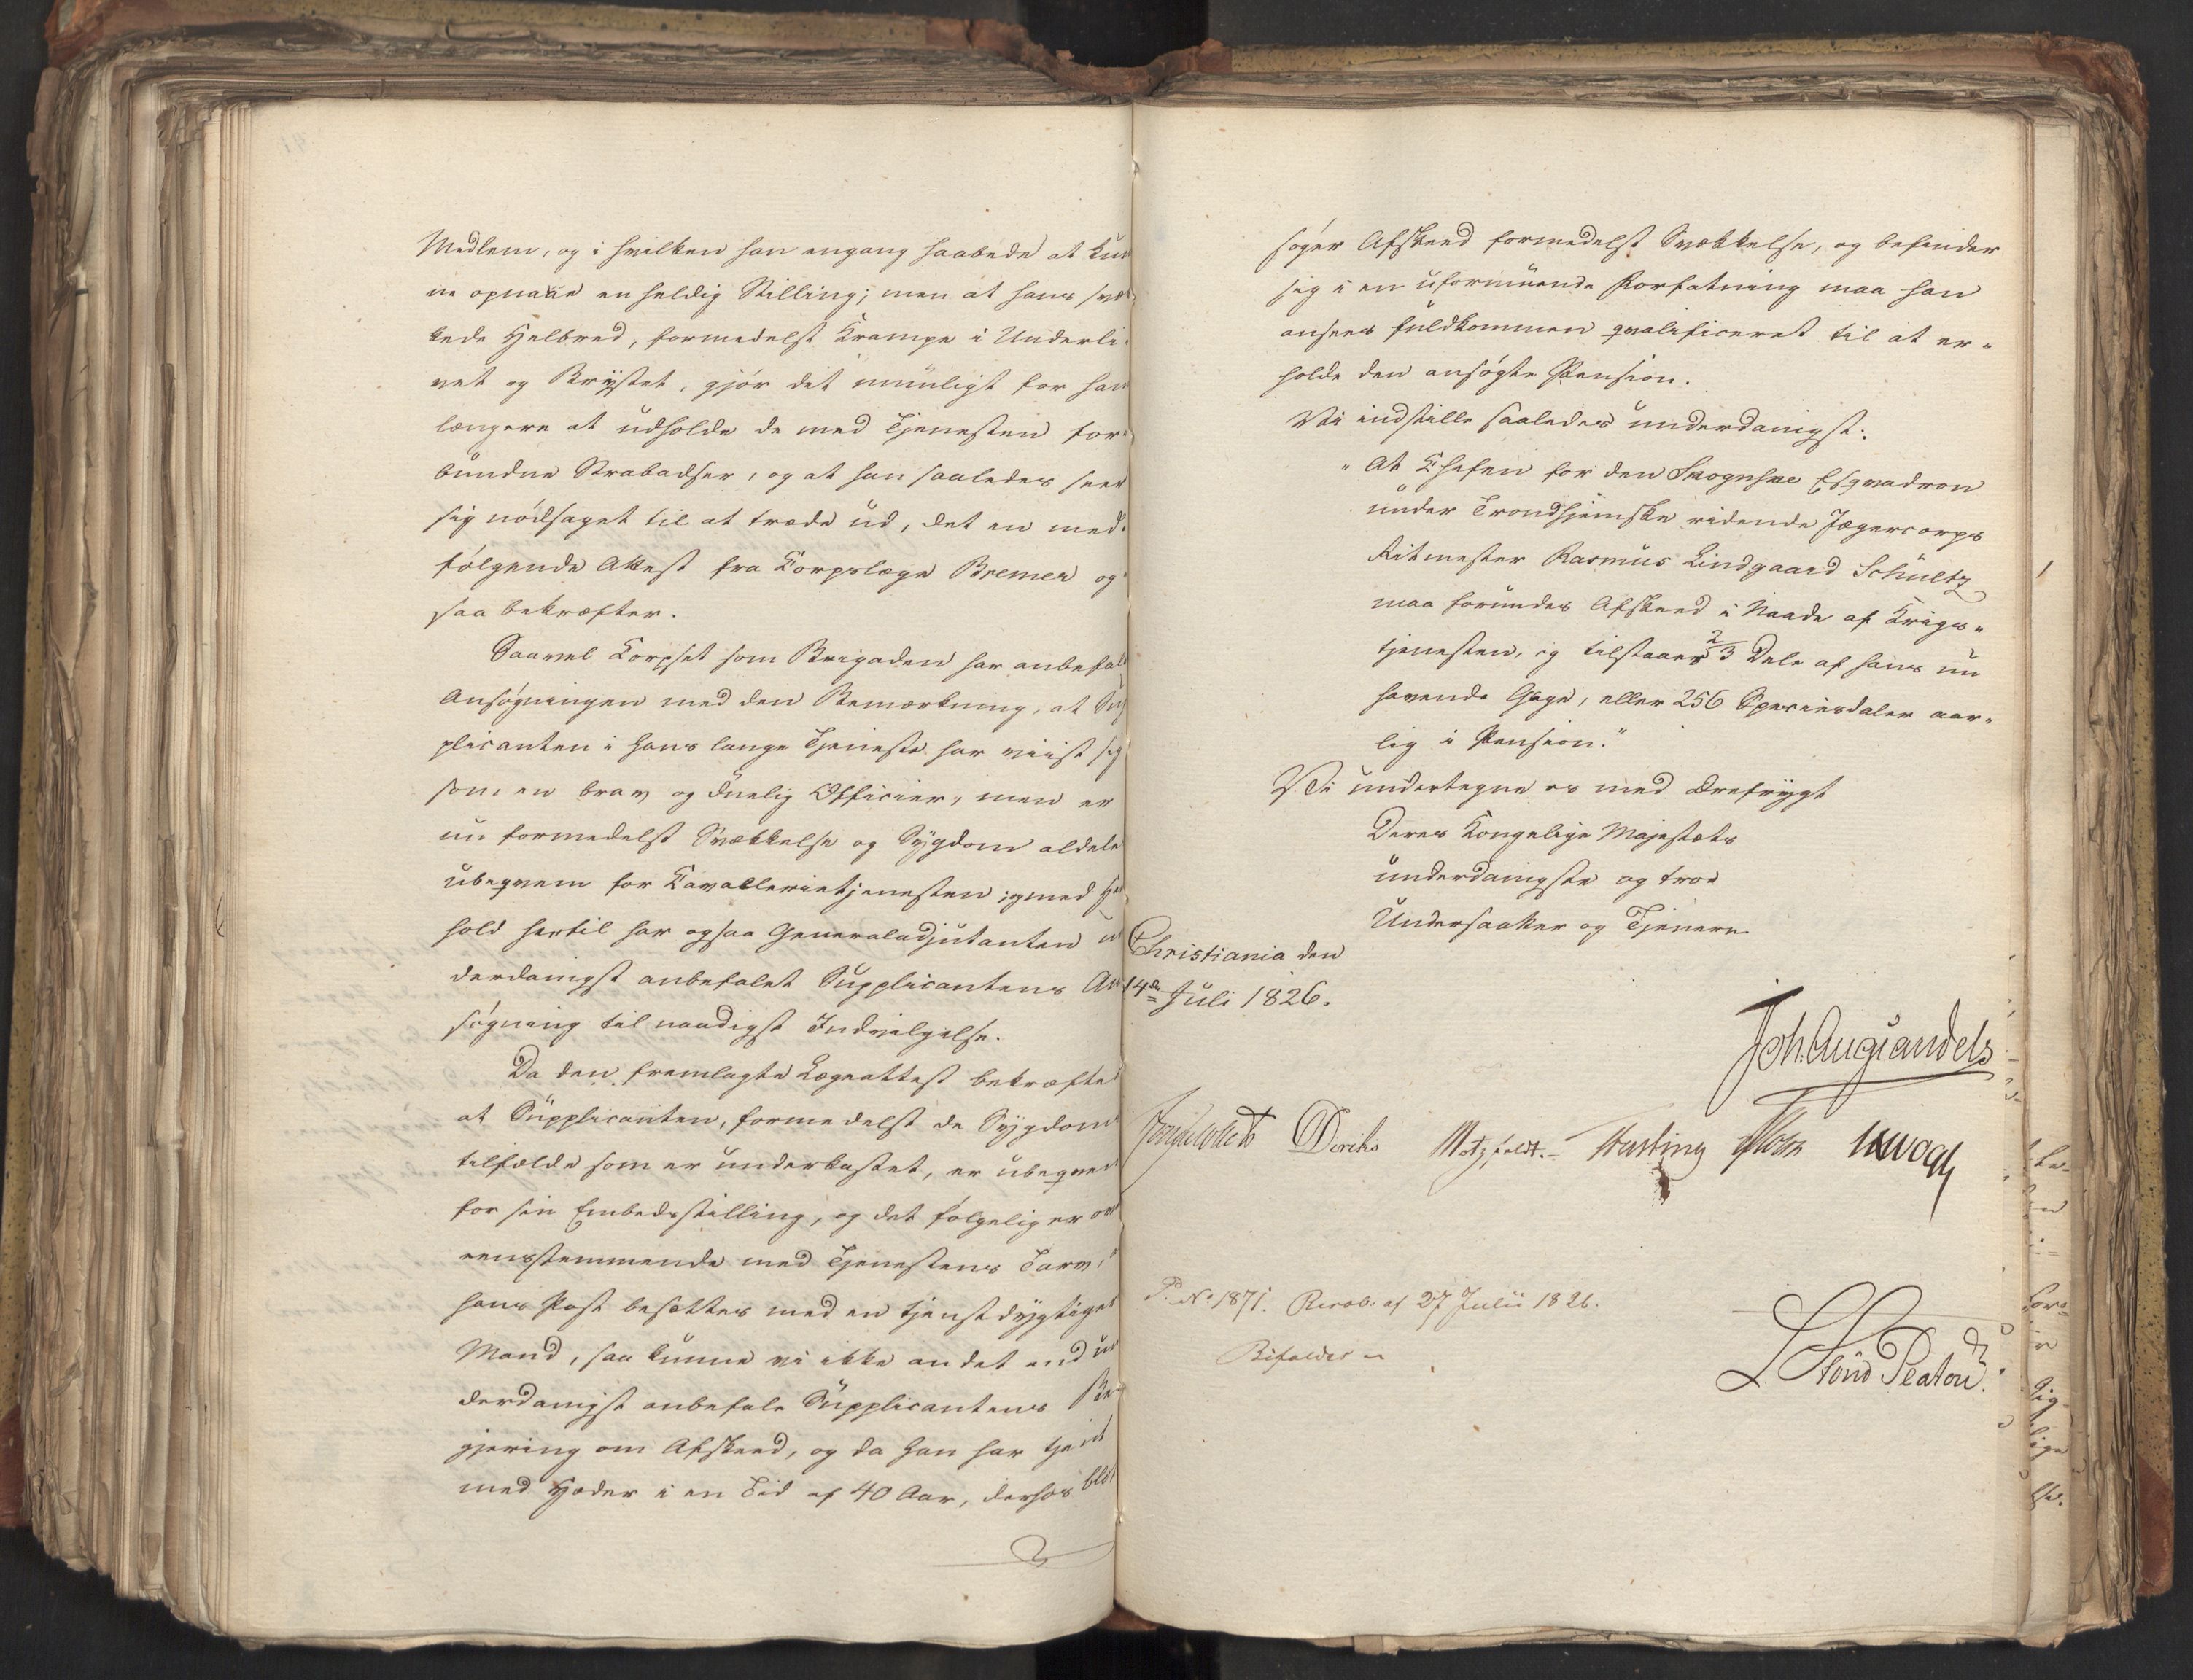 Medlem, og i hvilken han engang haabede at kun
ne opnaae en heldig Stilling; men at hans svæk
kede Helbred, formedelst Krampe i Underli-
vet og Brystet, gjør det umuligt for ham
længere at udholde de med Tjenesten for-
bundne Strabadser, og at han saaledes seer
sig nødsaget til at træde ud, det en med-
følgende Attest fra Corpslæge Bremer og-
saa bekræfter.
Saavel Corpset som Brigaden har anbefalt
Ansøgningen med den Bemærkning, at Sup
plicanten i hans lange Tjeneste har viist sig
som en brav og duelig Officier, men er
nu formedelst Svækkelse og Sygdom aldeles
ubeqvem for Cavallerietjenesten; med Hen
hold hertil har ogsaa Generaladjutanten un
derdanigst anbefalet Supplicantens An
søgning til naadigst Indvilgelse.
Da den fremlagte Lægeattest bekræfter
at Supplicanten, formedelst de Sygdoms
tilfælde som er underkastet, er ubeqvem
for sin Embedsstilling, og det følgelig er ove
rensstemmende med Tjenestens Tarv, at
hans Post besættes med en tjenstdygtiger
Mand, saa kunne vi ikke andet end un
derdanigst anbefale Supplicantens Be-
gjering om Afskeed, og da han har tjent
med Hæder i en Tid af 40 Aar, derhos blot
søger Afskeed formedelst Svækkelse, og befinder
sig i en uformuende Forfatning maa han
ansees fuldkommen qvalificeret til at er-
holde den ansøgte Pension.
Vi indstille saaledes underdanigst:
"At Chefen for den Skognske Esqvadron
under Trondhjemske ridende Jægercorps
Ritmester Rasmus Lindgaard Schultz
maa forundes Afskeed i Naade af Krigs-
tjenesten, og tilstaaes 2/3 Dele af hans nu
havende Gage, eller 256 Speciesdaler aar-
lig i Pension."
Vi undertegne os med Ærefrygt
Deres Kongelige Majestæts
underdanigste og troe
Undersaatter og Tjenere
Christiania den
14de Juli 1826.
Joh. Aug Sandels
Diriks Motzfeldt. Fasting Holst
P. No. 1871. Resol. af 27 Julii 1826.
Bifaldes